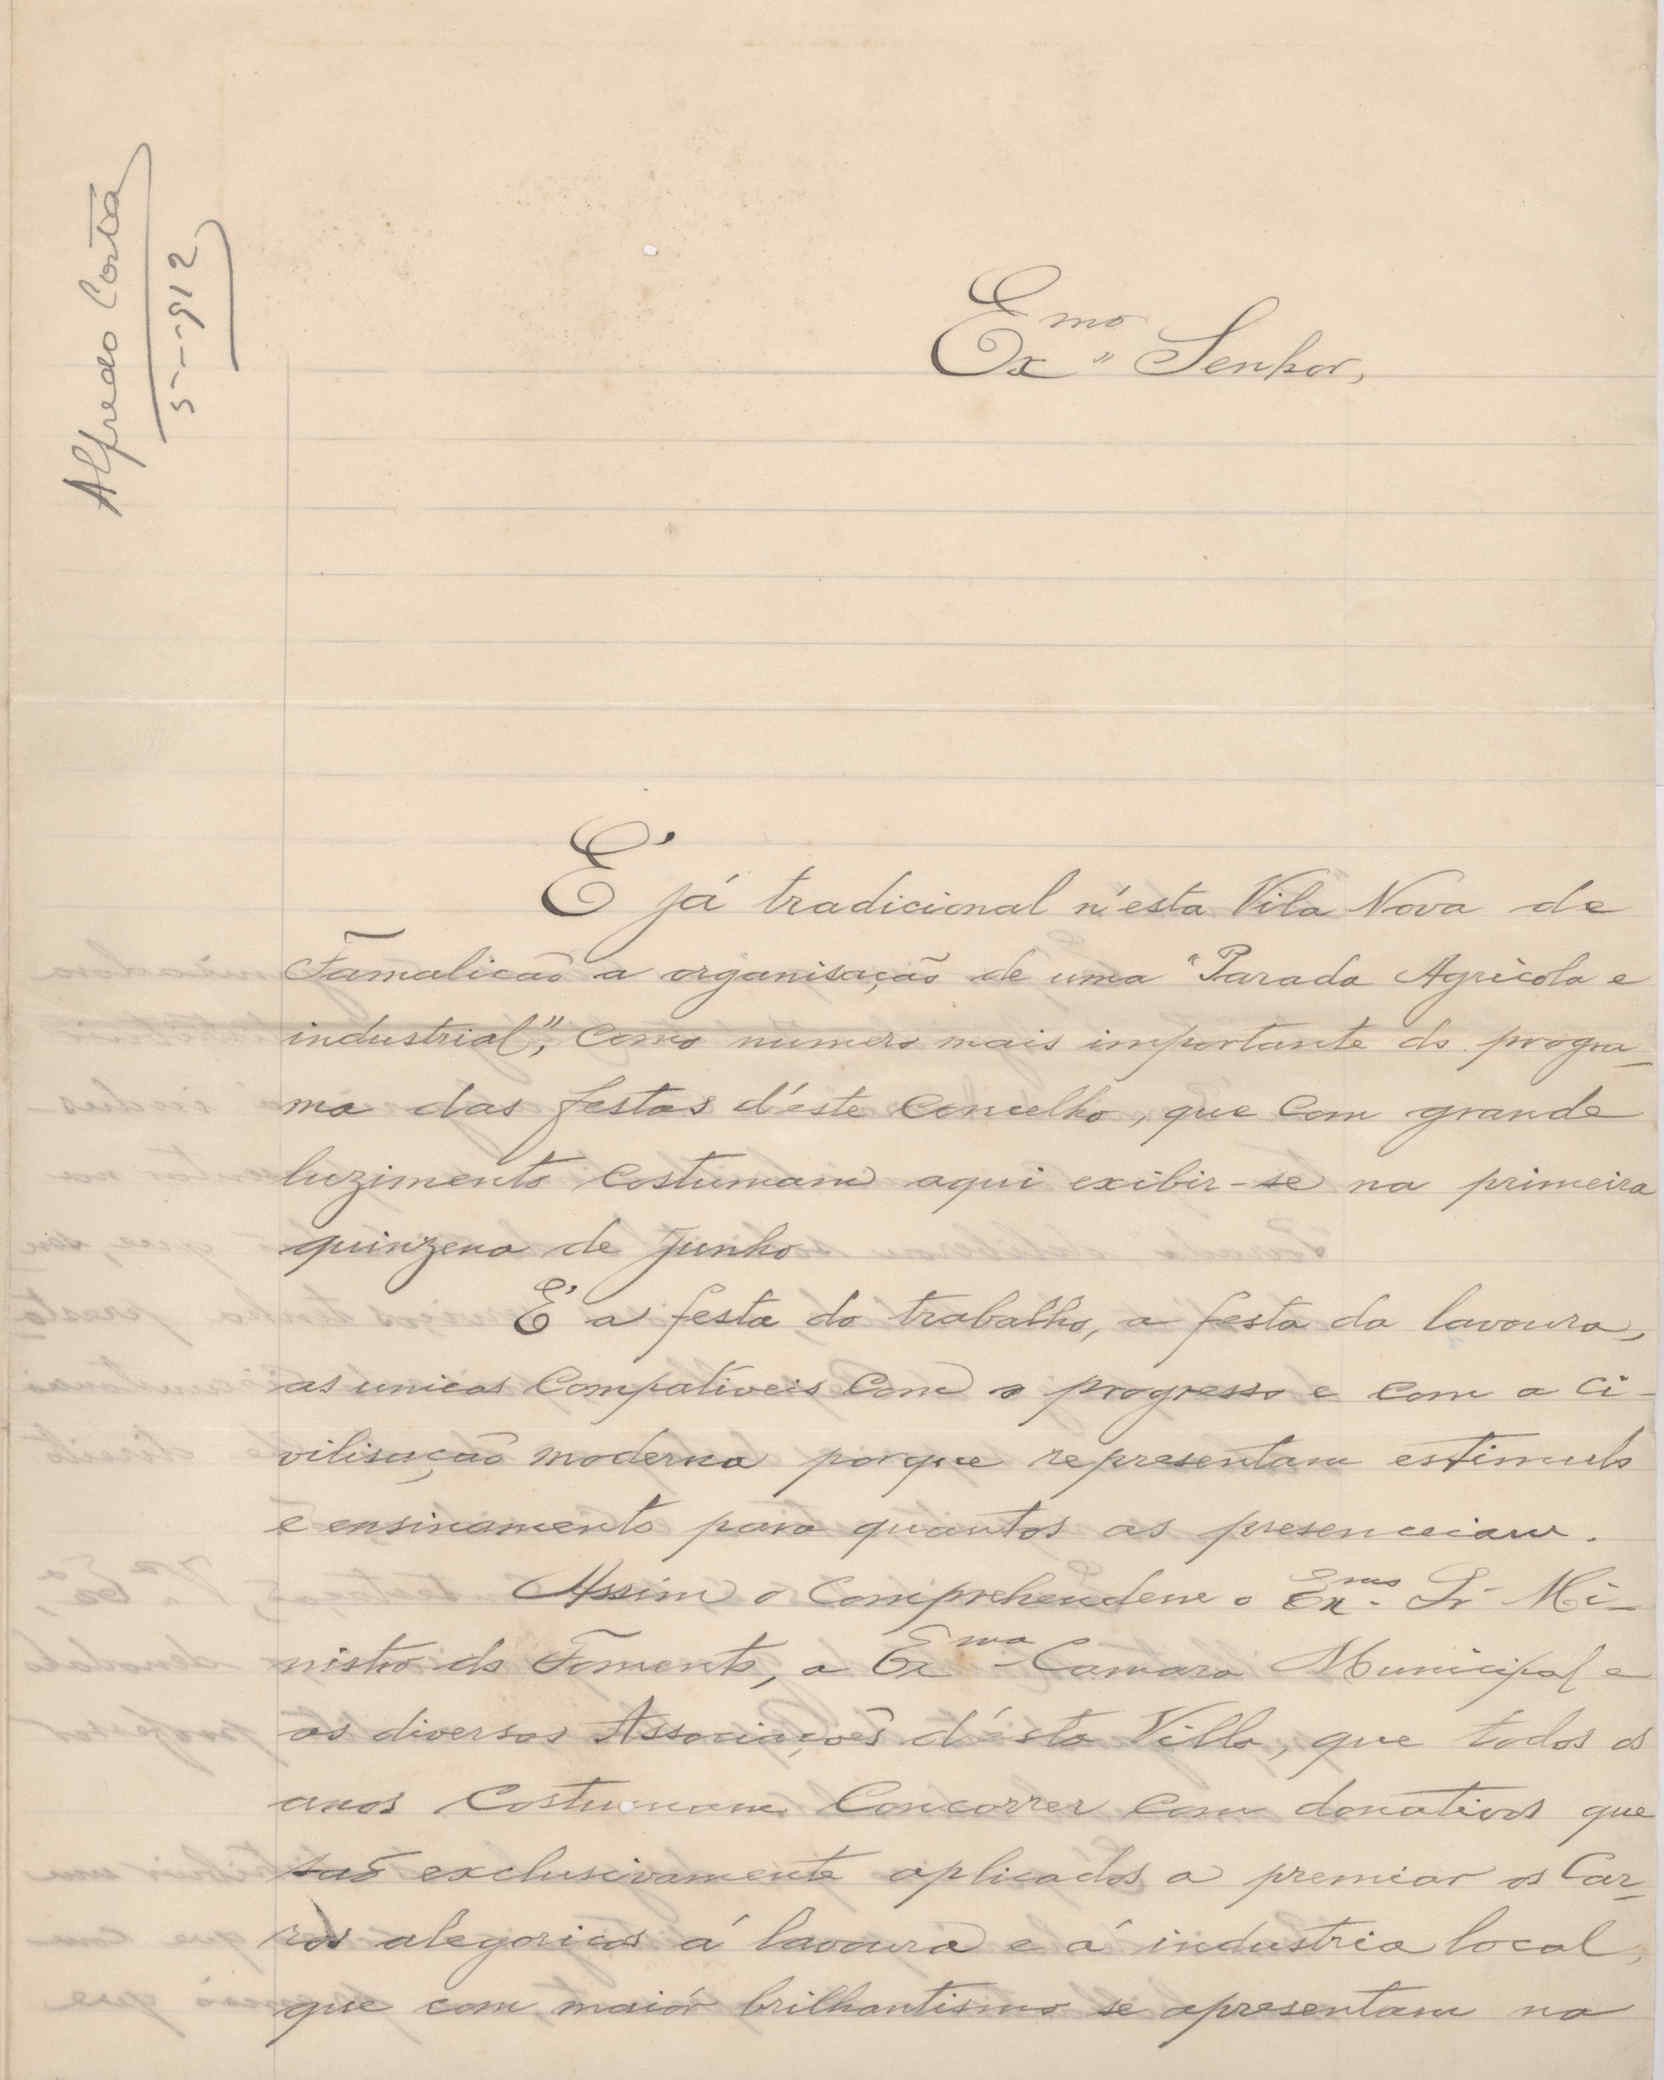 Alfredo Costa
5--912
Ex.mo Senhor,
É já tradicional n'esta Vila Nova de
Famalicão a organisação de uma "Parada Agricola e
industrial", como numero mais importante do progra-
ma das festas d'éste concelho, que com grande
luzimento costumam aqui exibir-se na primeira
quinzena de junho
É a festa do trabalho, a festa da lavoura,
as unicas compativeis com o progresso e com a ci-
vilisação moderna porque representam estimulo
e ensinamento para quantos as presenceiam.
Assim o comprehendem o Ex.mo Sr. Mi-
nistro do Fomento, a Ex.ma Camara Municipal e
as diversas Associações d'ésta Villa, que todos os
anos costumam concorrer com donativos que
são exclusivamente aplicados a premiar os car-
ros alegoricos á lavoura e á industria local,
que com maiór brilhantismo se apresentam na